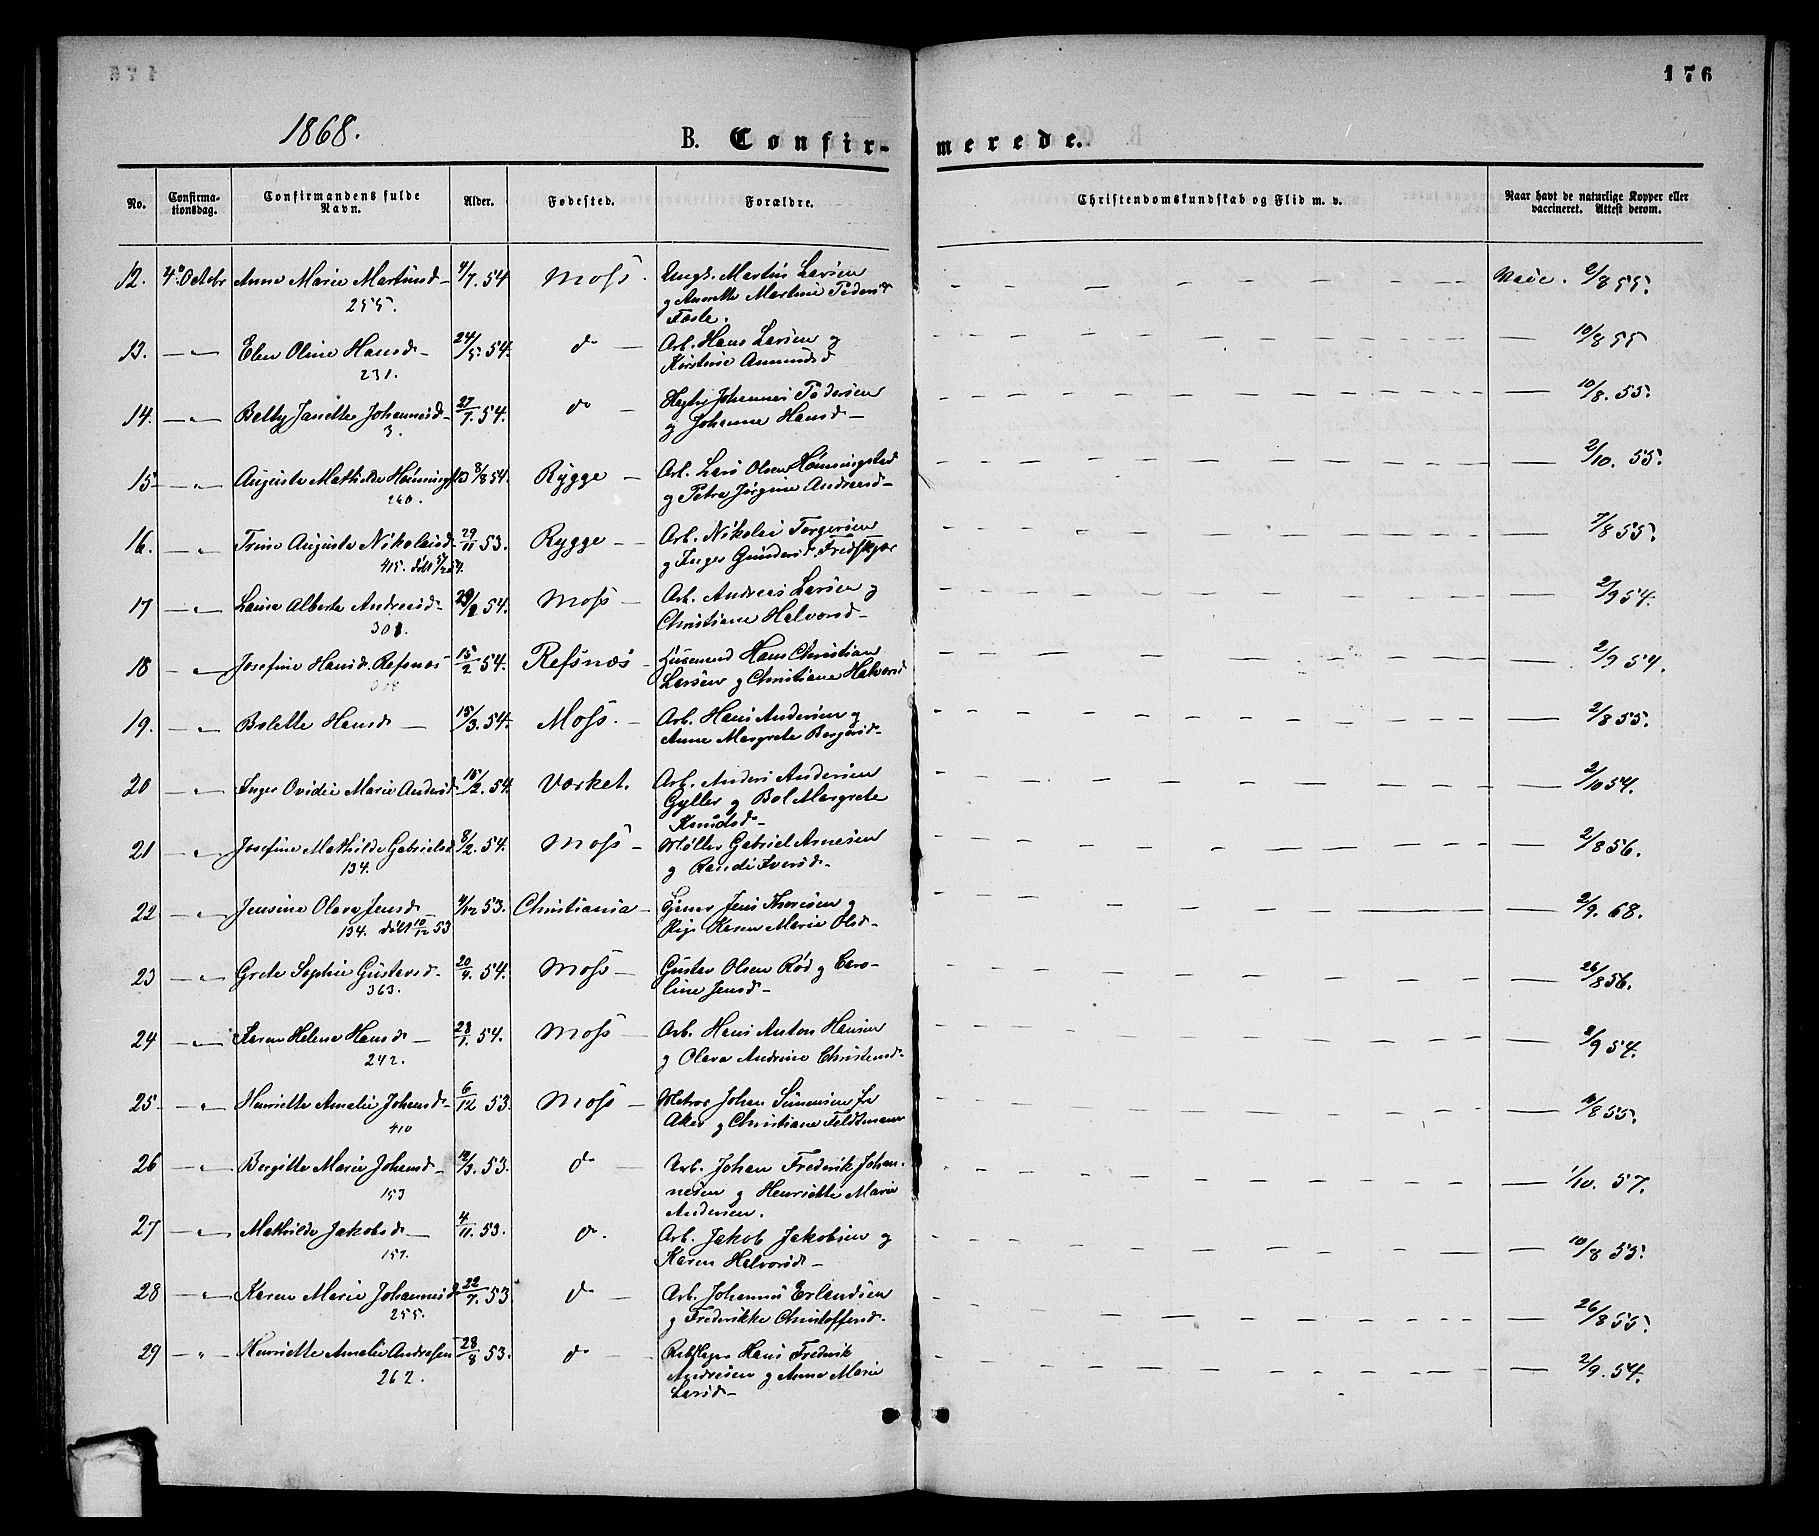 176
1868.
B. Confirmerede.
No.
Confirma-
tionsdag.
Confirmandens fulde
Navn.
Alder.
Fødested.
Forældre.
Christendomskundskab og Flid m. v.
Naar havt de naturlige Kopper eller
vaccineret. Attest derom.
12. 4. Octobr Anne Marie Martinsd 4/7. 54 Moss. Martin Larsen Vacc. 2/8 55.
255. og Anrette Martine Pedersd
Fosle.
13. — " — Elen Oline Hansd 24/5. 54. do — Arb. Hans Larsen og — 10/8 55
231. Kirstine Amundsd
14. — " — Betty Janette Johannesd 27/7. 54. do — Johannes Pedersen — 10/8. 55.
3. og Johanne Hansd
15 — " — Auguste Mathilde 8/8 54. Rygge — Arb. Lars Olsen Hønningstad — 2/10. 55.
260. og Petra Jørgine Andreasd
16. — " — Trine Auguste Nikolaisd 29/11 53. Rygge — Arb. Nikolai Torgersen — 7/8 55.
415. døbt 5/2 54. og Inger Gundersd. Fredskjær
17 — " — Laura Alberte Andreasd 54. Moss — Arb. Andreas Larsen og — 2/9 54.
301. Christiane Halvorsd
18 — " — Josefine Hansd. Refsnæs 15/2 54. Refsnæs — Husmand Hans Christian — 2/9 54.
Larsen og Christiane Halvorsd
19. — " — Bolette Hansd 15/3. 54. Moss. — Arb. Hans Andersen og — 2/8 55.
Anne Margrete Bergersd
20 — " — Inger Ovidie Marie Andersd 15/2. 54. Værket. Arb. Anders Andersen — 2/10 54.
Gyller og Bol Margrete
Knudsd
21 — " — Josefine Mathilde Gabrielsd 8/2. 54. Moss — Møller Gabriel Arnesen — 2/8 56.
134. og Randi Iversd
22 — " — Jensine Olava Jensd 4/12 53. Christiania — Jens Thoresen og — 2/9. 68.
134. døbt 10/12 53 Pige Karen Marie Olsd
23 — " — Grete Sophie Gustavsd 20/4. 54. Moss — Gustav Olsen Rød og Caro- — 26/8 56.
363. line Jensd
24 — " — Karen Helene Hansd 28/1. 54. Moss — Arb. Hans Anton Hansen — 8/9 54.
242. og Olava Andrine Christensd
25. — " — Henriette Amalie Johansd 6/12 53. Moss — Matros Johan Simensen fra — 11/8 55.
410 Aker og Christiane Feldtmann
26 — " — Bergitte Marie Johansd 53. do — Arb. Johan Frederik Johan- — 1/10. 57.
153 nesen og Henriette Marie
Andersen.
27 — " — Mathilde Jakobsd 4/11. 53. do. Arb. Jakob Jakobsen og — 10/8 55.
157. Karen Halvorsd
28 — " — Karen Marie Johannesd 22/7. 53. do — Arb. Johannes Erlandsen — 26/8 55.
255. og Frederikke Christoffersd.
29 — " — Henriette Amalie Andresen 28/8 53. do — Rebslager Hans Fredrik — 2/9. 54.
262. Andresen og Anne Marie
Larsd